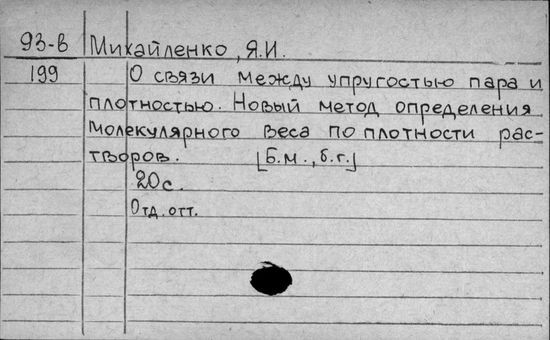 93-В Михайленко, Я.И.
199 О связи между упругостью пара и
плотностью. Новый метод определения
молекулярного веса по плотности рас-
творов. [Б.м., б.г.]
20с.
Отд. отт.